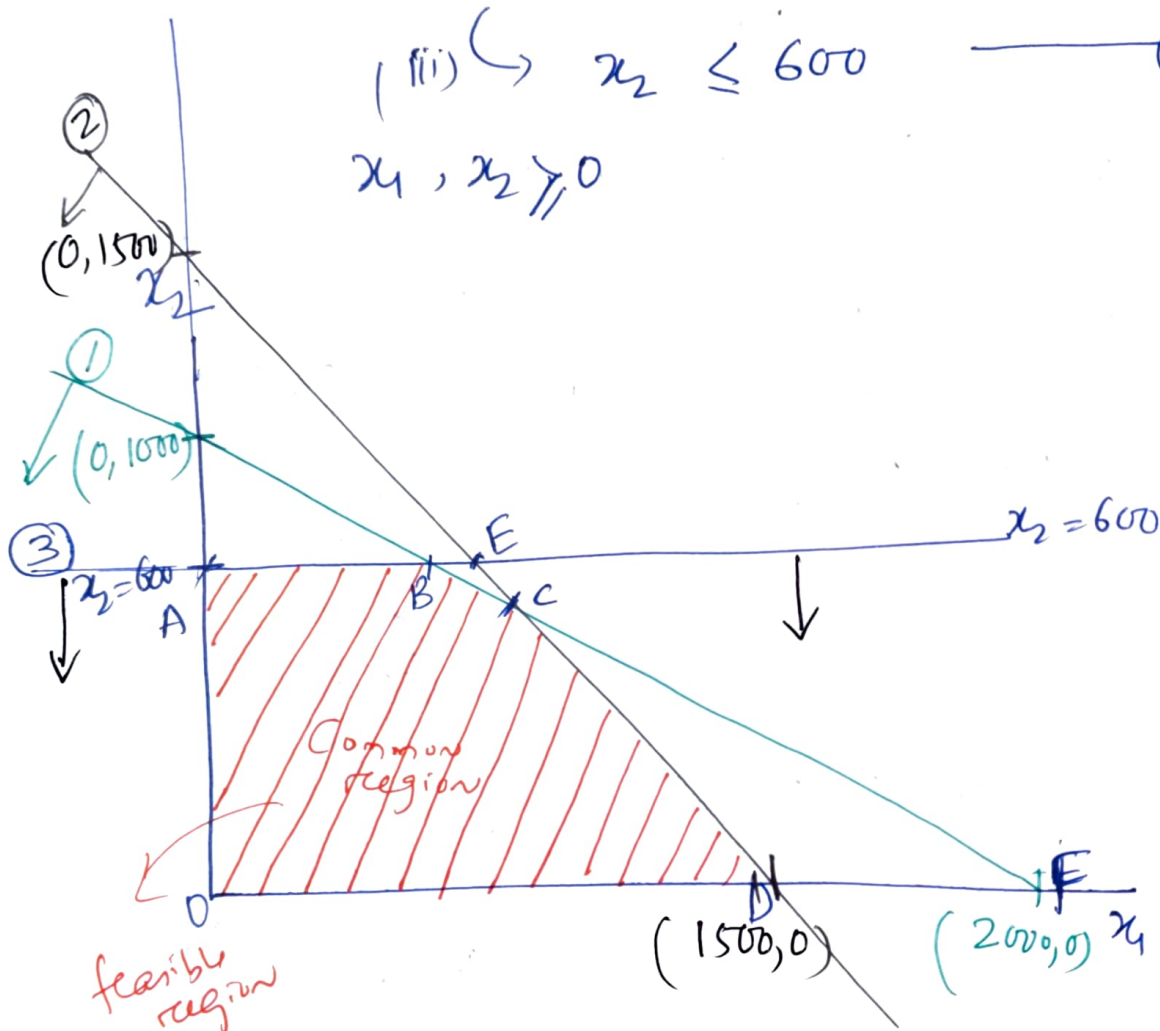 (iii) x₂ ≤ 600
x₁, x₂ ≥ 0
②
(0,1500)
x₂
①
(0,1000)
③
x₂=600
A
B
E
C
x₂=600
Common
region
O
D
(1500,0)
E
(2000,0)
x₁
feasible
region